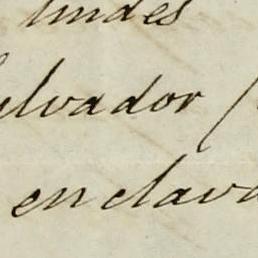 lindes
alvador (
en clava